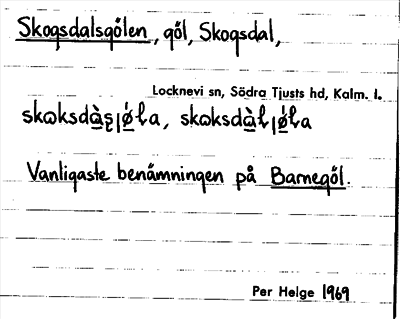 Skogsdalsgölen, göl, Skogsdal,
Locknevi sn, Södra Tjusts hd, Kalm. l.
Vanligaste benämningen på Barnegöl.
Per Helge 1969